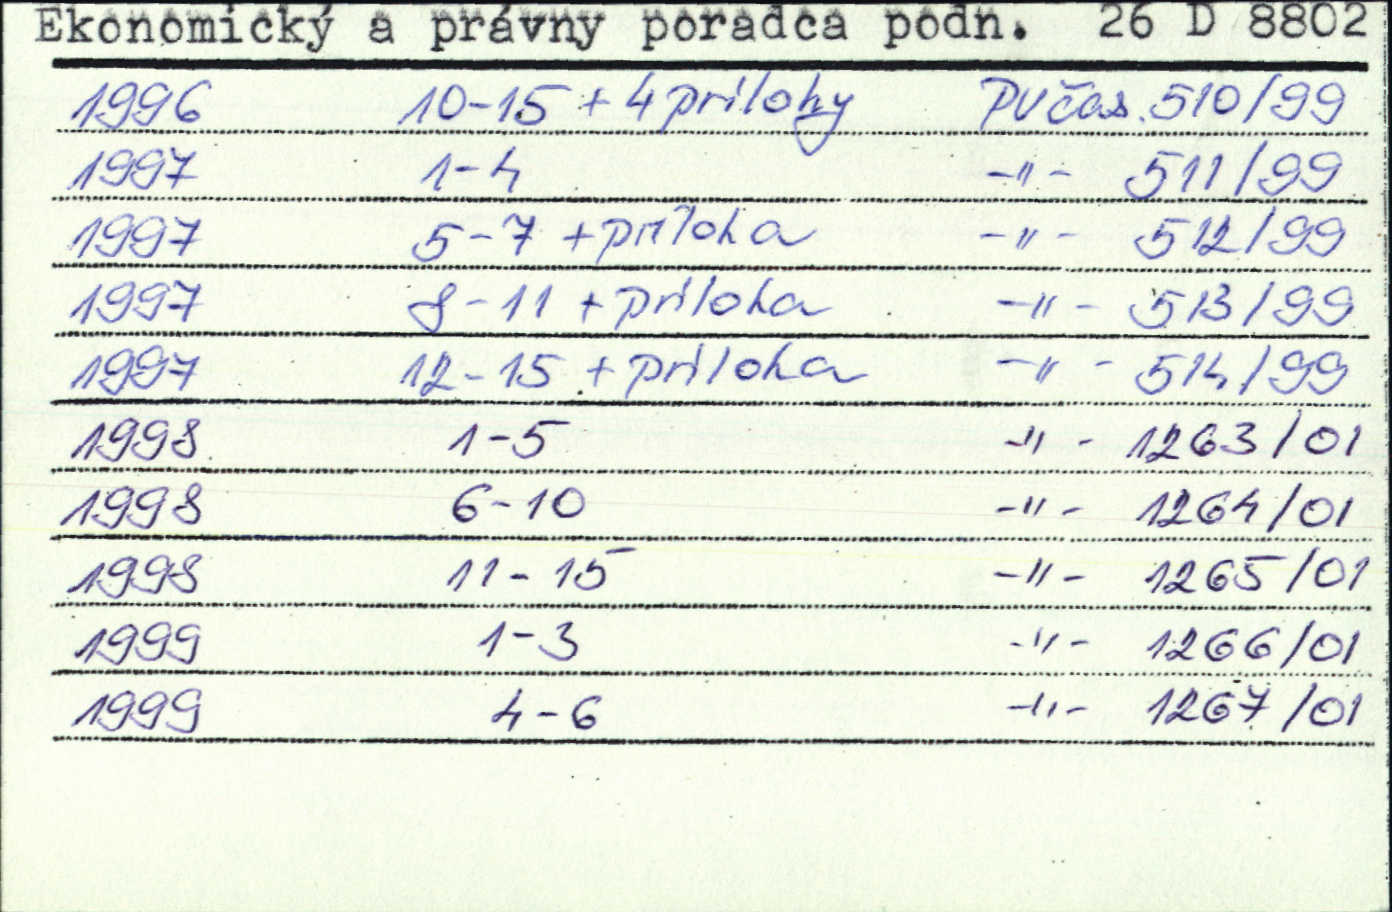 Ekonomický a právny poradca podn. 26 D 8802
1996 10-15 + 4 prílohy PV čas. 510/99
1997 1-4 -"- 511/99
1997 5-7 + príloha -"- 512/99
1997 8-11 + príloha -"- 513/99
1997 12-15 + príloha -"- 514/99
1998 1-5 -"- 1263/01
1998 6-10 -"- 1264/01
1998 11-15 -"- 1265/01
1999 1-3 -"- 1266/01
1999 4-6 -"- 1267/01